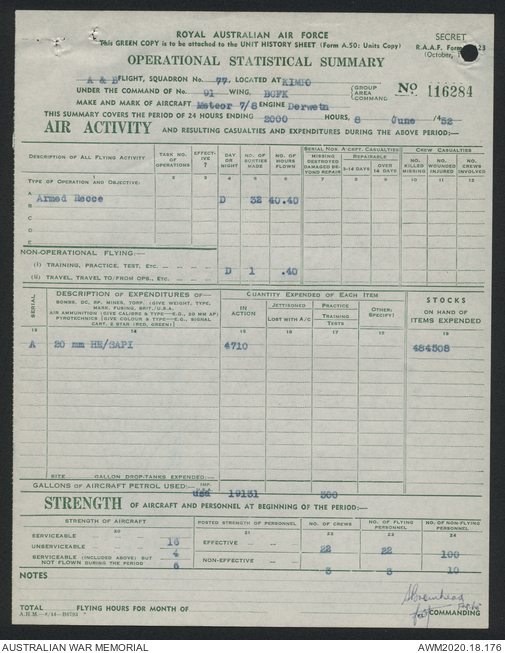 ROYAL AUSTRALIAN AIR FORCE
SECRET
This GREEN COPY is to be attached to the UNIT HISTORY SHEET (Form A.50: Units Copy)
R.A.A.F. Form 23
(October, 1
OPERATIONAL STATISTICAL SUMMARY
A & B FLIGHT, SQUADRON No. 77, LOCATED AT KIMPO
UNDER THE COMMAND OF No. 91 WING, BCFK (GROUP AREA COMMAND) No 116284
MAKE AND MARK OF AIRCRAFT Meteor 7/8 ENGINE Derwetn
THIS SUMMARY COVERS THE PERIOD OF 24 HOURS ENDING 2000 HOURS, 8 June /52
AIR ACTIVITY AND RESULTING CASUALTIES AND EXPENDITURES DURING THE ABOVE PERIOD:—
DESCRIPTION OF ALL FLYING ACTIVITY
TASK NO. OF OPERATIONS
EFFECTIVE ?
DAY OR NIGHT
NO. OF SORTIES MADE
NO. OF HOURS FLOWN
MISSING DESTROYED DAMAGED BEYOND REPAIR
REPAIRABLE
2-14 DAYS
OVER 14 DAYS
CREW CASUALTIES
NO. KILLED MISSING
NO. WOUNDED INJURED
NO. CREWS INVOLVED
1 2 3 4 5 6 7 8 9 10 11 12
TYPE OF OPERATION AND OBJECTIVE:—
A Armed Recce D 32 40.40
B
C
D
E
NON-OPERATIONAL FLYING:—
(i) TRAINING, PRACTICE, TEST, ETC.
(ii) TRAVEL, TRAVEL TO/FROM OPS., ETC. D 1 .40
SERIAL
DESCRIPTION OF EXPENDITURES OF—
BOMBS, DC, RP, MINES, TORP. (GIVE WEIGHT, TYPE, MARK, FUSING, BRIT./U.S.A.
AIR AMMUNITION (GIVE CALIBRE & TYPE—E.G., 20 MM AP)
PYROTECHNICS (GIVE COLOUR & TYPE—E.G., SIGNAL CART. 2 STAR (RED, GREEN))
QUANTITY EXPENDED OF EACH ITEM
IN ACTION
JETTISONED
LOST WITH A/C
PRACTICE
TRAINING
TESTS
OTHER: SPECIFY
STOCKS
ON HAND OF ITEMS EXPENDED
13 14 15 16 17 18 19
A 20 mm HE/SAPI 4710 484508
SIZE GALLON DROP-TANKS EXPENDED:—
GALLONS OF AIRCRAFT PETROL USED:— IMP. USA 19131 300
STRENGTH OF AIRCRAFT AND PERSONNEL AT BEGINNING OF THE PERIOD:—
STRENGTH OF AIRCRAFT
POSTED STRENGTH OF PERSONNEL
NO. OF CREWS
NO. OF FLYING PERSONNEL
NO. OF NON-FLYING PERSONNEL
20 21 22 23 24
SERVICEABLE 16
UNSERVICEABLE 4
SERVICEABLE (INCLUDED ABOVE) BUT NOT FLOWN DURING THE PERIOD 6
EFFECTIVE 22 22 100
NON-EFFECTIVE 3 3 10
NOTES
TOTAL FLYING HOURS FOR MONTH OF
COMMANDING
AUSTRALIAN WAR MEMORIAL
AWM2020.18.176